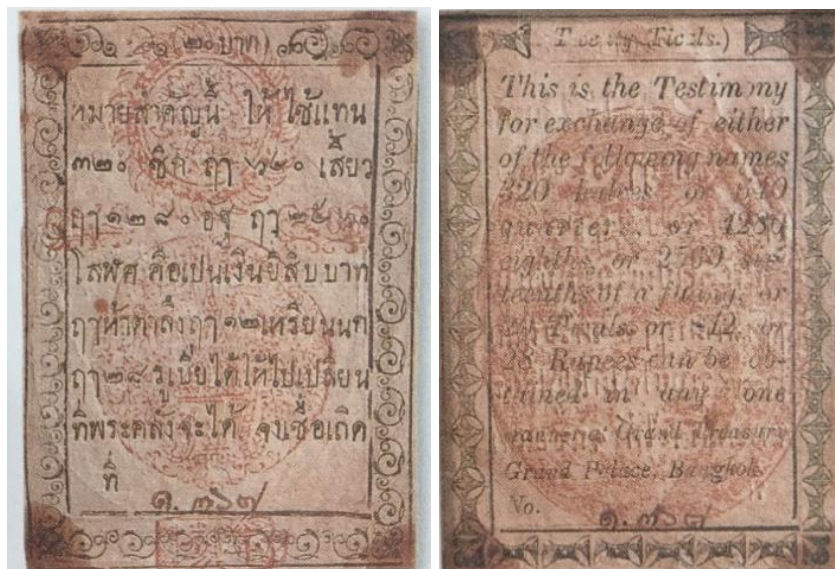 (๒๐ บาท)
หมายสำคัญนี้ ให้ ใช้แทน
๓๒๐ ซีก ฤๅ ๖๔๐ เสี้ยว
ฤๅ ๑๒๘๐ อฐ ฤๅ ๒๕๖๐
โสฬศ คือเป็นเงินยี่สิบบาท
ฤๅห้าตำลึงฤๅ ๑๒เหรียนนก
ฤๅ ๒๘ รูเปียได้ให้ไปเปลี่ยน
ที่พระคลังจะได้ จงเชื่อเถิด
ที่
๑.๓๖๗
Twenty Ticals.)
This is the Testimony
for exchange of either
of the following names
320 halves or 640
quarters, or 1280
eighths, or 2560
teenths of a fuang, or
Ticals, or 12, or
28 Rupees can be ob-
tained in any one
manner at Grand Treasury
Grand Palace, Bangkok.
No.
๑.๓๖๗